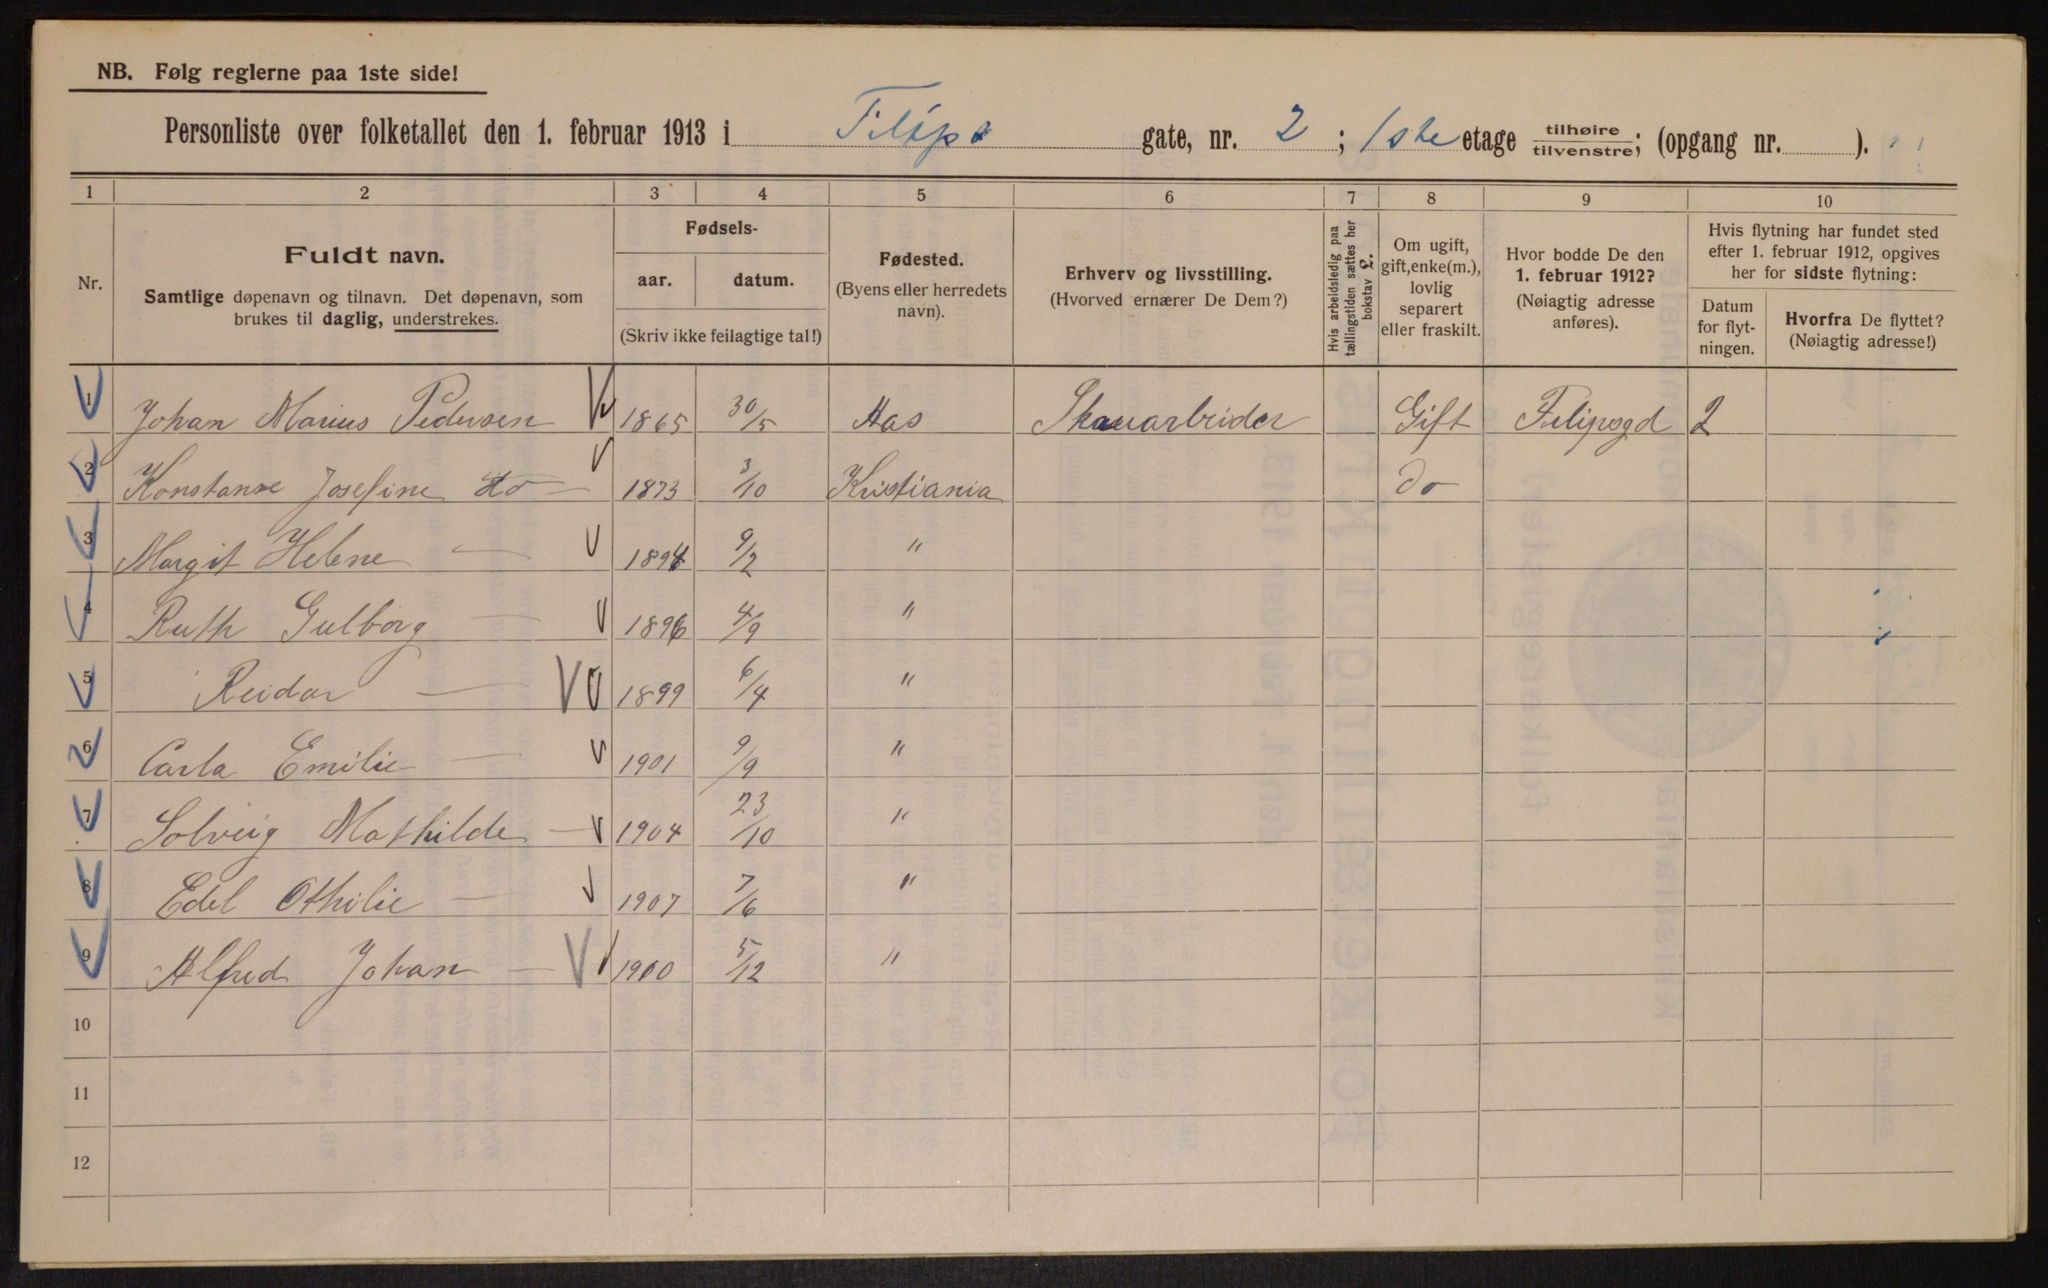 NB. Følg reglerne paa 1ste side!
Personliste over folketallet den 1. februar 1913 i Filips gate, nr. 2 ; 1ste etage tilhøire/tilvenstre; (opgang nr. ).
1 2 3 4 5 6 7 8 9 10
Nr.
Fuldt navn.
Samtlige døpenavn og tilnavn. Det døpenavn, som
brukes til daglig, understrekes.
Fødsels-
aar. datum.
(Skriv ikke feilagtige tal!)
Fødested.
(Byens eller herredets
navn).
Erhverv og livsstilling.
(Hvorved ernærer De Dem?)
Hvis arbeidsledig paa
tællingstiden sættes her
bokstav L.
Om ugift,
gift, enke(m.),
lovlig
separert
eller fraskilt.
Hvor bodde De den
1. februar 1912?
(Nøiagtig adresse
anføres).
Hvis flytning har fundet sted
efter 1. februar 1912, opgives
her for sidste flytning:
Datum
for flyt-
ningen.
Hvorfra De flyttet?
(Nøiagtig adresse!)
1 Johan Marius Pedersen 1865 30/5 Aas Skauarbeider Gift Filipsgd 2
2 Konstanse Josefine do 1873 3/10 Kristiania do
3 Margit Helene — 1894 9/2 "
4 Ruth Gulborg — 1896 4/9 "
5 Reidar — 1899 6/4 "
6 Carla Emilie — 1901 9/9 "
7 Solveig Mathilde — 1904 23/10 "
8 Edel Othilie — 1907 7/6 "
9 Alfred Johan — 1900 5/12 "
10
11
12